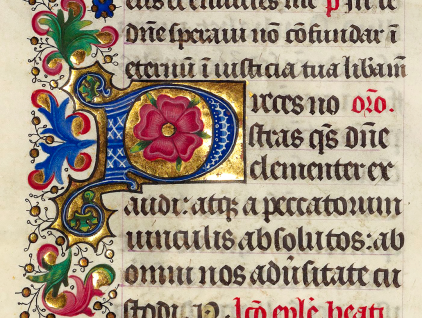 dñe speraui nõ cõfundar ĩ
eternũ ĩ iusticia tua libam̃
Preces no orõ.
stras qs̃ dñe
clementer ex
audi: atqꝫ a peccatorum
uinculis absolutos: ab
omni nos adũsitate cu
stodi P. lcõ eplẽ beati